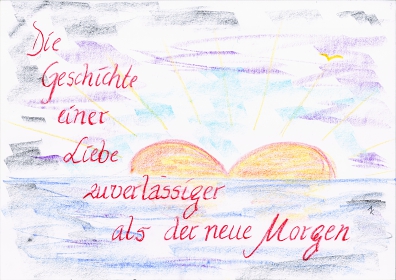 Die
Geschichte
einer
Liebe
zuverlässiger
als der neue Morgen